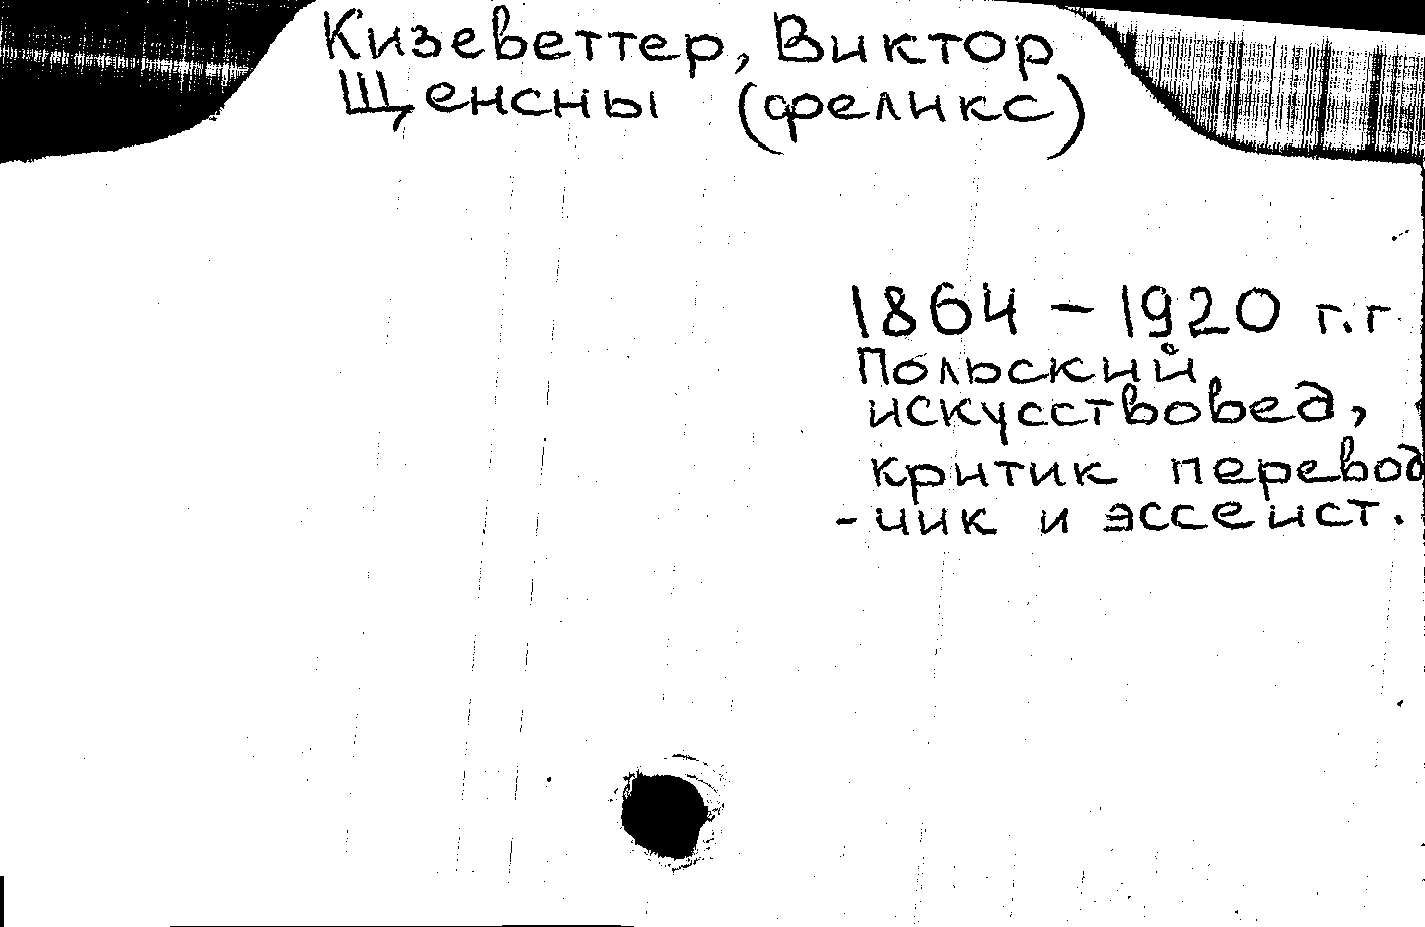 Кизеветтер, Виктор
Щенсны (феликс)
1864 - 1920 г.г
Польский
искусствовед,
критик перевод
-чик и эссеист.